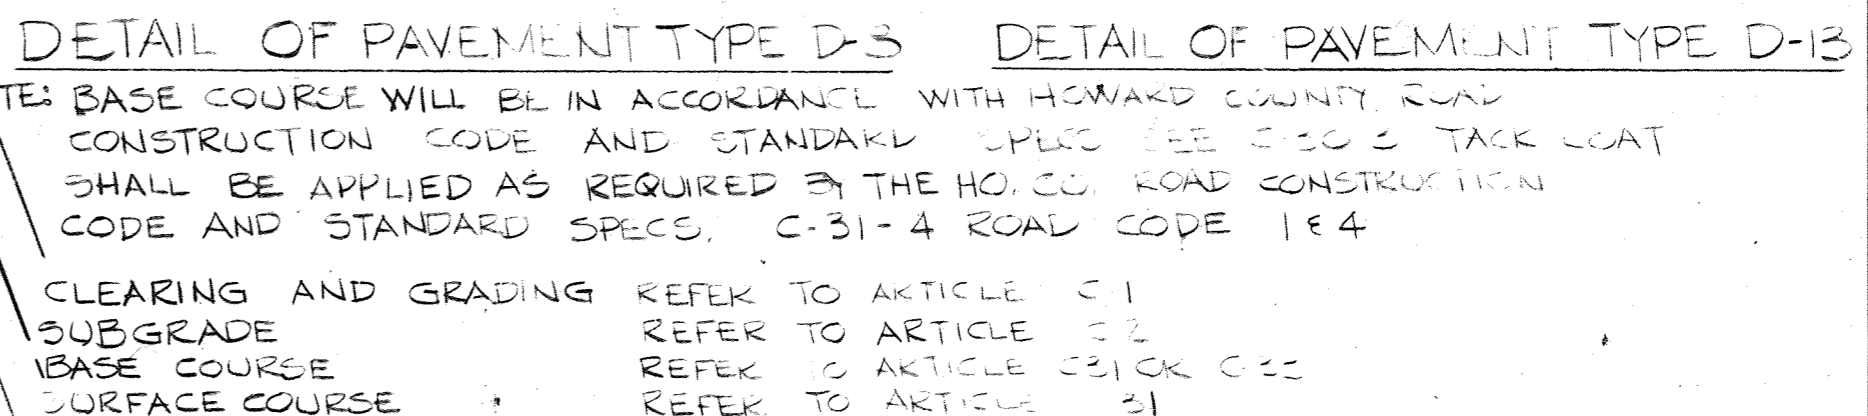 DETAIL OF PAVEMENT TYPE D-3 DETAIL OF PAVEMENT TYPE D-13
TE: BASE COURSE WILL BE IN ACCORDANCE WITH HOWARD COUNTY ROAD
CONSTRUCTION CODE AND STANDARD SPECS SEE TACK COAT
SHALL BE APPLIED AS REQUIRED BY THE HO. CO. ROAD CONSTRUCTION
CODE AND STANDARD SPECS. C-31-4 ROAD CODE 1 & 4
CLEARING AND GRADING REFER TO ARTICLE C 1
SUBGRADE REFER TO ARTICLE C 2
BASE COURSE REFER TO ARTICLE C31 OR
SURFACE COURSE REFER TO ARTICLE 31